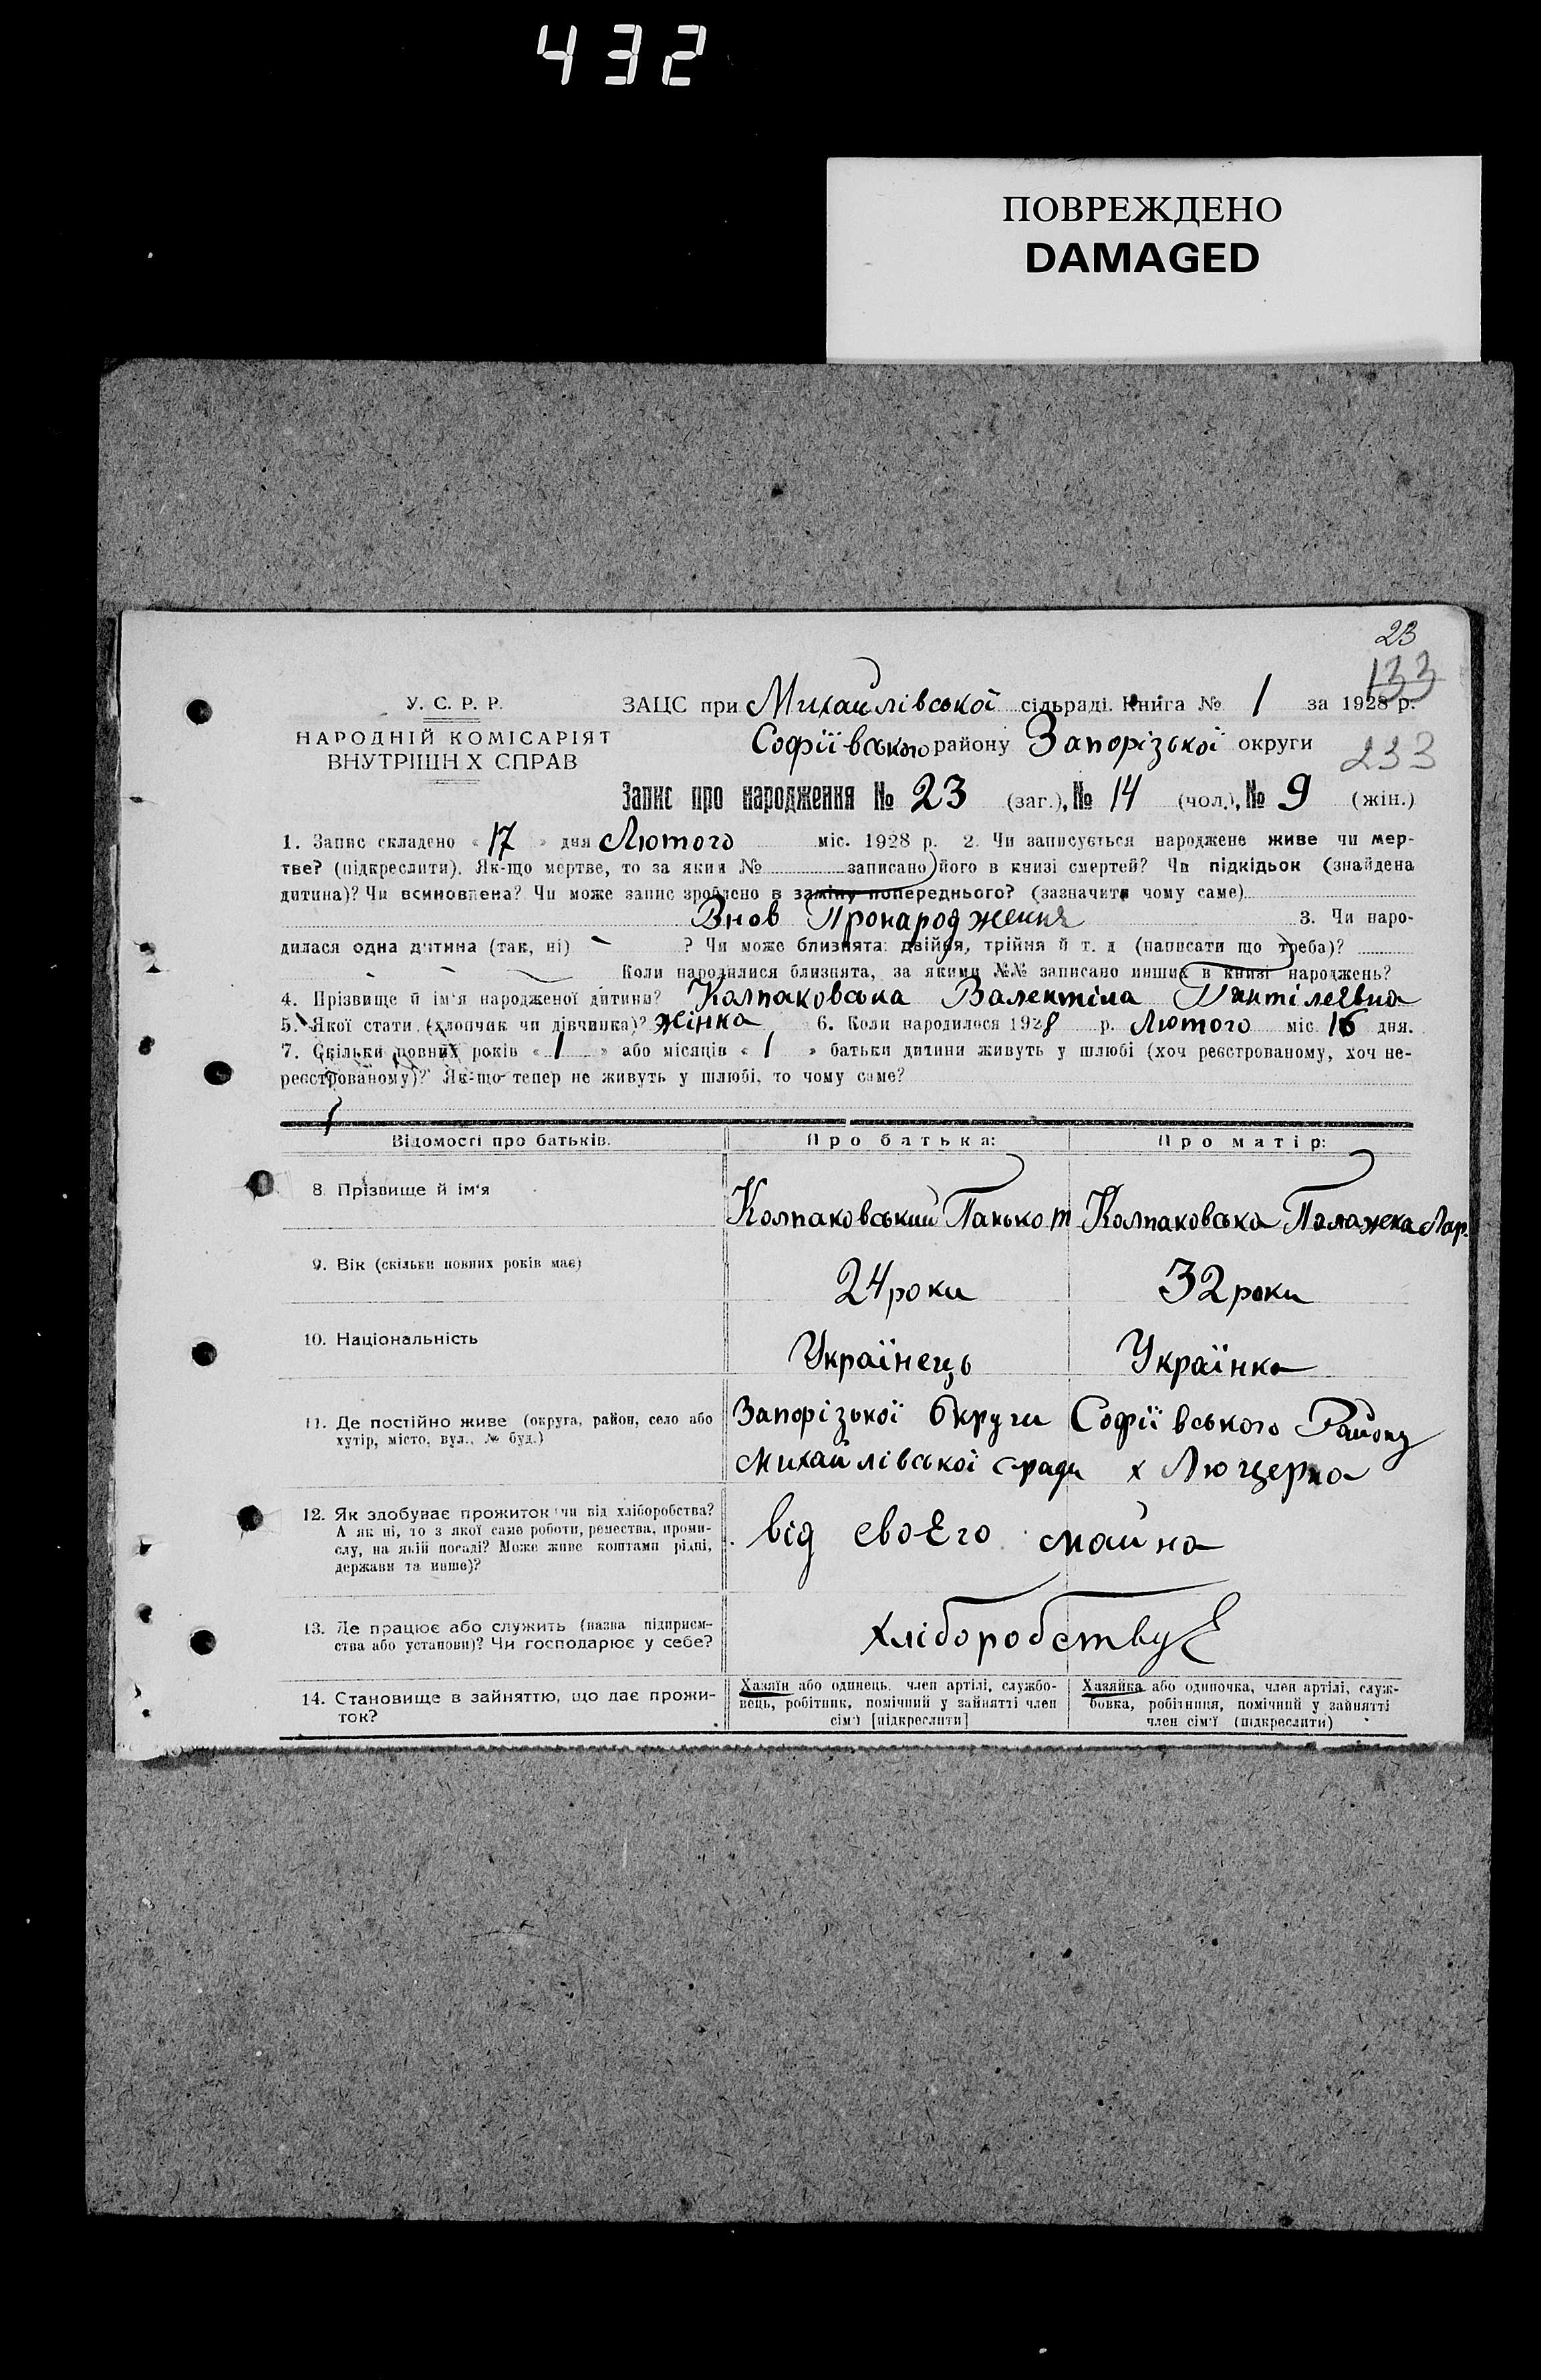 432
ПОВРЕЖДЕНО
DAMAGED
23
133
У. С. Р. Р.
НАРОДНІЙ КОМІСАРІЯТ
ВНУТРІШН Х СПРАВ
ЗАЦС при Михайлівської сільраді. Книга № 1 за 1928 р.
Софіївського району Запорізької округи
233
Запис про народження № 23 (заг.), № 14 (чол.), № 9 (жін.)
1. Запис складено « 17 » дня Лютого міс. 1928 р. 2. Чи записується народжене живе чи мер-
тве? (підкреслити). Як-що мертве, то за яким № записано його в книзі смертей? Чи підкідьок (знайдена
дитина)? Чи всиновлена? Чи може запис зроблено в заміну попереднього? (зазначити чому саме)
Внов Пронародження 3. Чи наро-
дилася одна дитина (так, ні) - ? Чи може близнята: двійня, трійня й т. д (написати що треба)?
- - Коли народилися близнята, за якими №№ записано инших в книзі народжень?
4. Прізвище й ім'я народженої дитини? Колпаковська Валентіна Пантілеєвна
5. Якої стати (хлопчик чи дівчинка)? жінка 6. Коли народилося 1928 р. Лютого міс. 16 дня.
7. Скільки повних років « 1 » або місяців « 1 » батьки дитини живуть у шлюбі (хоч реєстрованому, хоч не-
реєстрованому)? Як-що тепер не живуть у шлюбі, то чому саме?
Відомості про батьків. Про батька: Про матір:
8. Прізвище й ім'я Колпаковський Панько т Колпаковська Палажека Лар.
9. Вік (скільки повних років має) 24 роки 32 роки
10. Національність Українець Українка
11. Де постійно живе (округа, район, село або
хутір, місто, вул., № буд.)
Запорізької Округи Софіївського Району
Михайлівської с-ради х Люцерна
12. Як здобуває прожиток (чи від хліборобства?
А як ні, то з якої саме роботи, ремества, проми-
слу, на якій посаді? Може живе коштами рідні,
держави та инше)?
від своЕго майна
13. Де працює або служить (назва підприєм-
ства або установи)? Чи господарює у себе?
хліборобствуЕ
14. Становище в зайняттю, що дає прожи-
ток?
Хазяїн або одинець. член артілі, службо-
вець, робітник, помічний у зайнятті член
сім'ї [підкреслити]
Хазяйка або одиночка, член артілі, служ-
бовка, робітниця, помічний у зайнятті
член сім'ї (підкреслити)